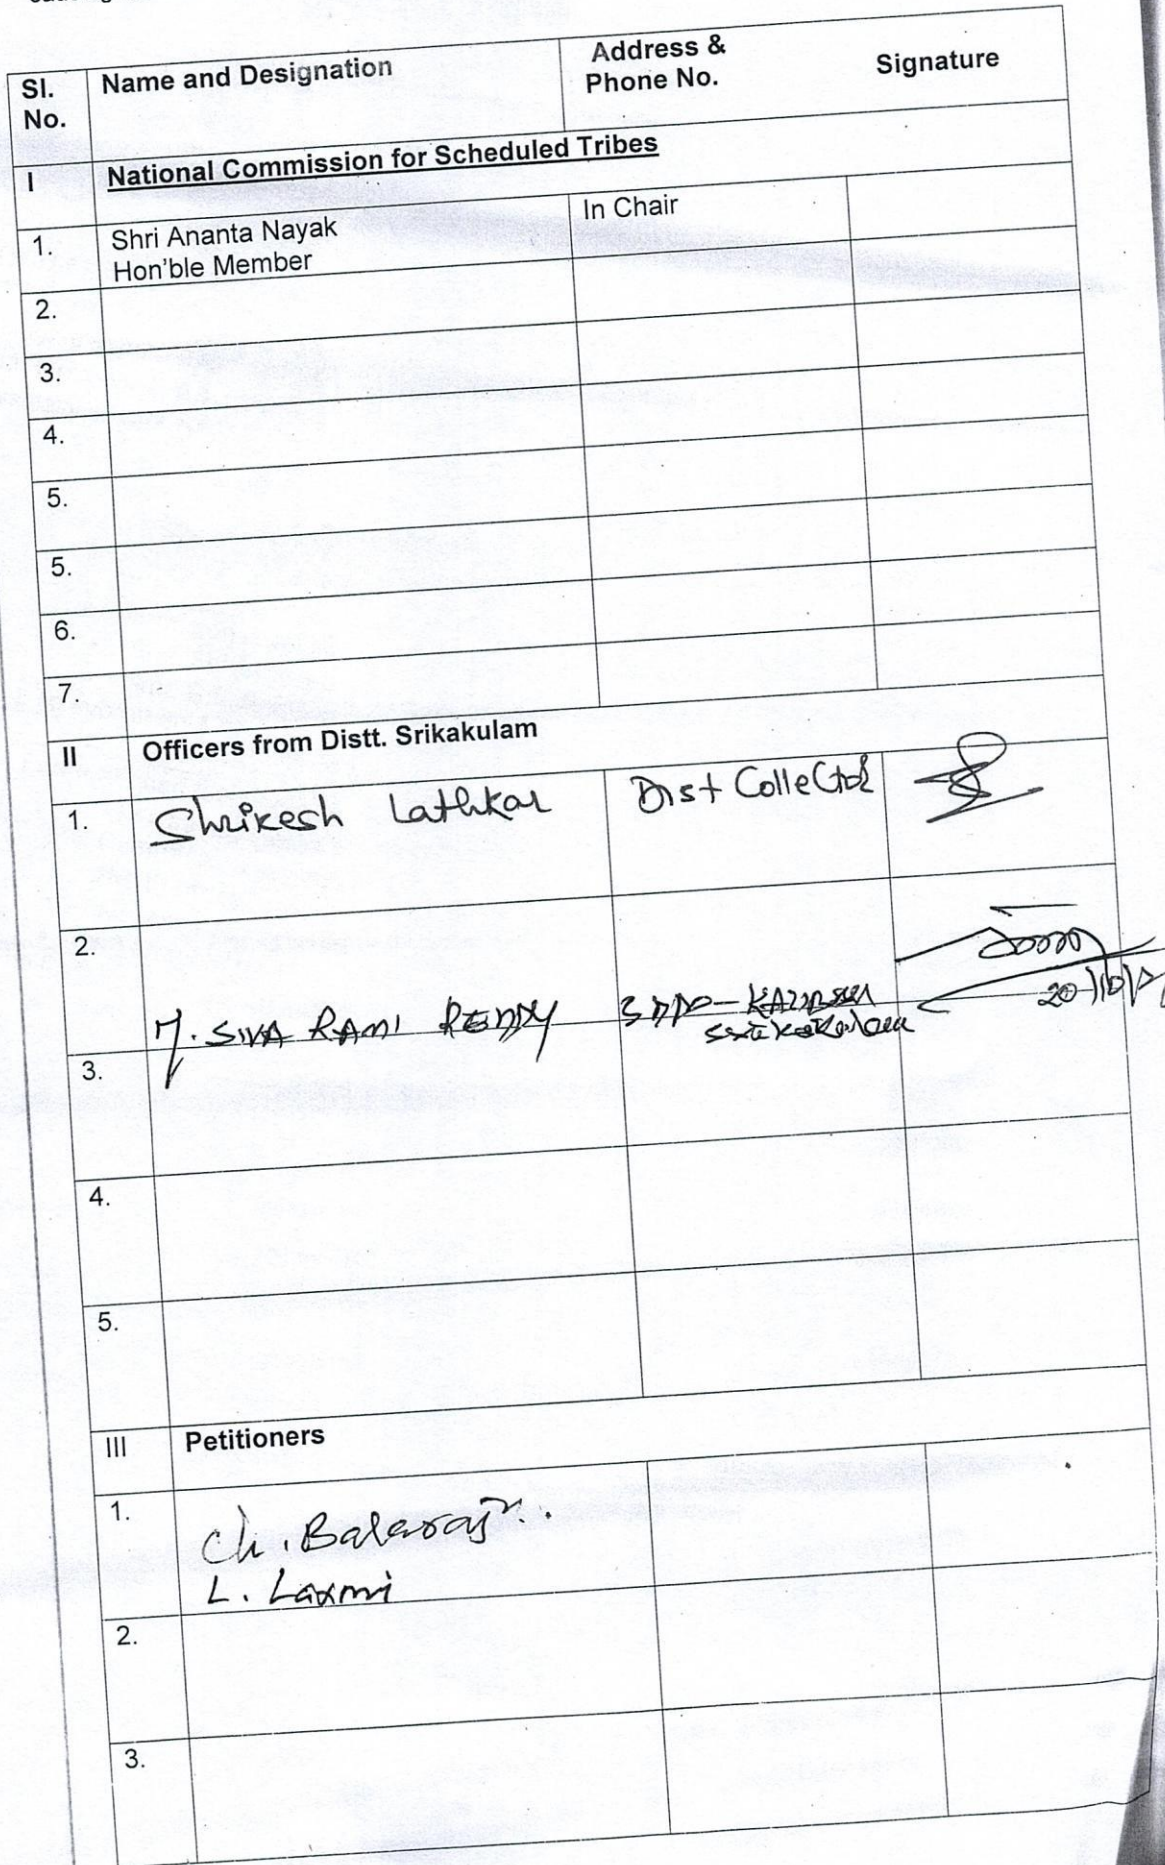 Sl. No. Name and Designation Address & Phone No. Signature
I National Commission for Scheduled Tribes
1. Shri Ananta Nayak In Chair
Hon'ble Member
2.
3.
4.
5.
5.
6.
7.
II Officers from Distt. Srikakulam
1. Shrikesh Lathkar Dist Collector
2.
M. SIVA RAMI REDDY
Srikakulam
3.
4.
5.
III Petitioners
1. Ch. Balaraju.
L. Laxmi
2.
3.